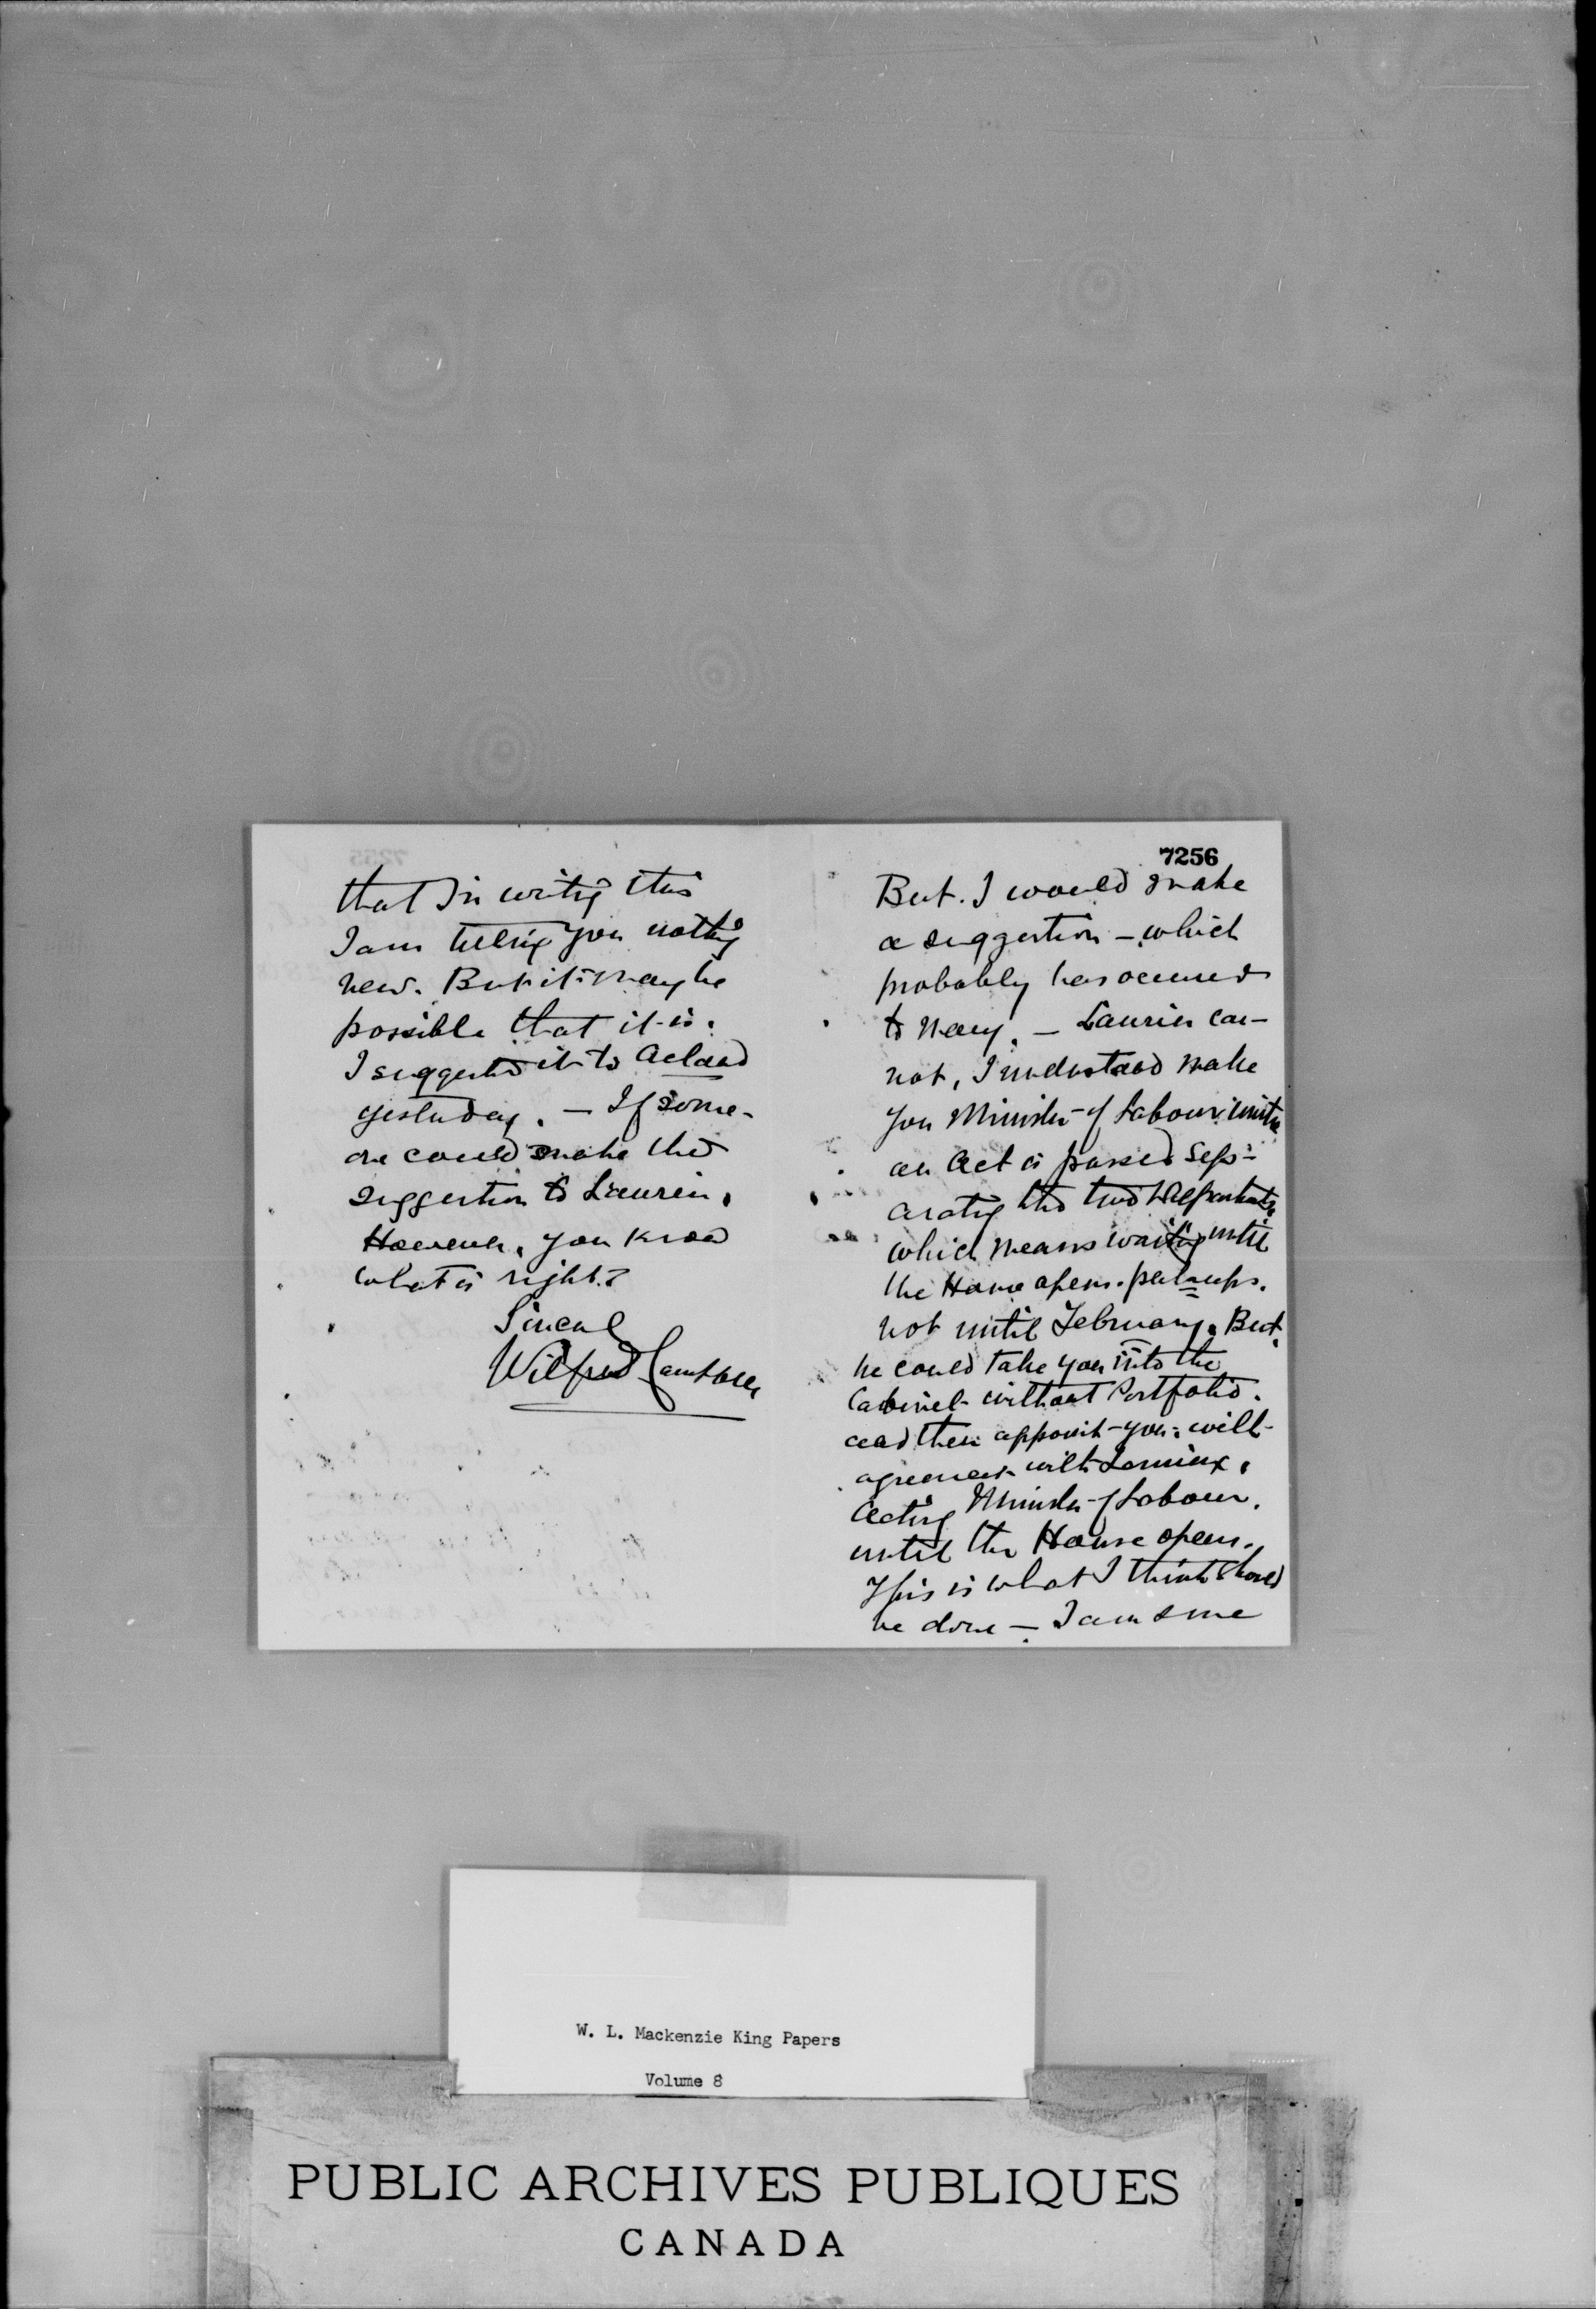 7256
But. I would make
a suggestion – which
probably has occurred
to many. – Laurier can-
not, I understand make
you Minister of Labour until
an Act is passed sep-
arating the two Departments,
which means waiting until
the House opens. perhaps.
not until February. But
he could take you into the
Cabinet without Portfolio.
and then appoint you. with
agreement with Lemieux,
Acting Minister of Labour.
until the House opens.
This is what I think should
be done – I am sure
that in writing this
I am telling you nothing
new. But it may be
possible that it is.
I suggested it to Acland
yesterday. – If some-
one could make the
suggestion to Laurier.
However, you know
what is right.
Sincerely
Wilfred Campbell
W. L. Mackenzie King Papers
Volume 8
PUBLIC ARCHIVES PUBLIQUES
CANADA